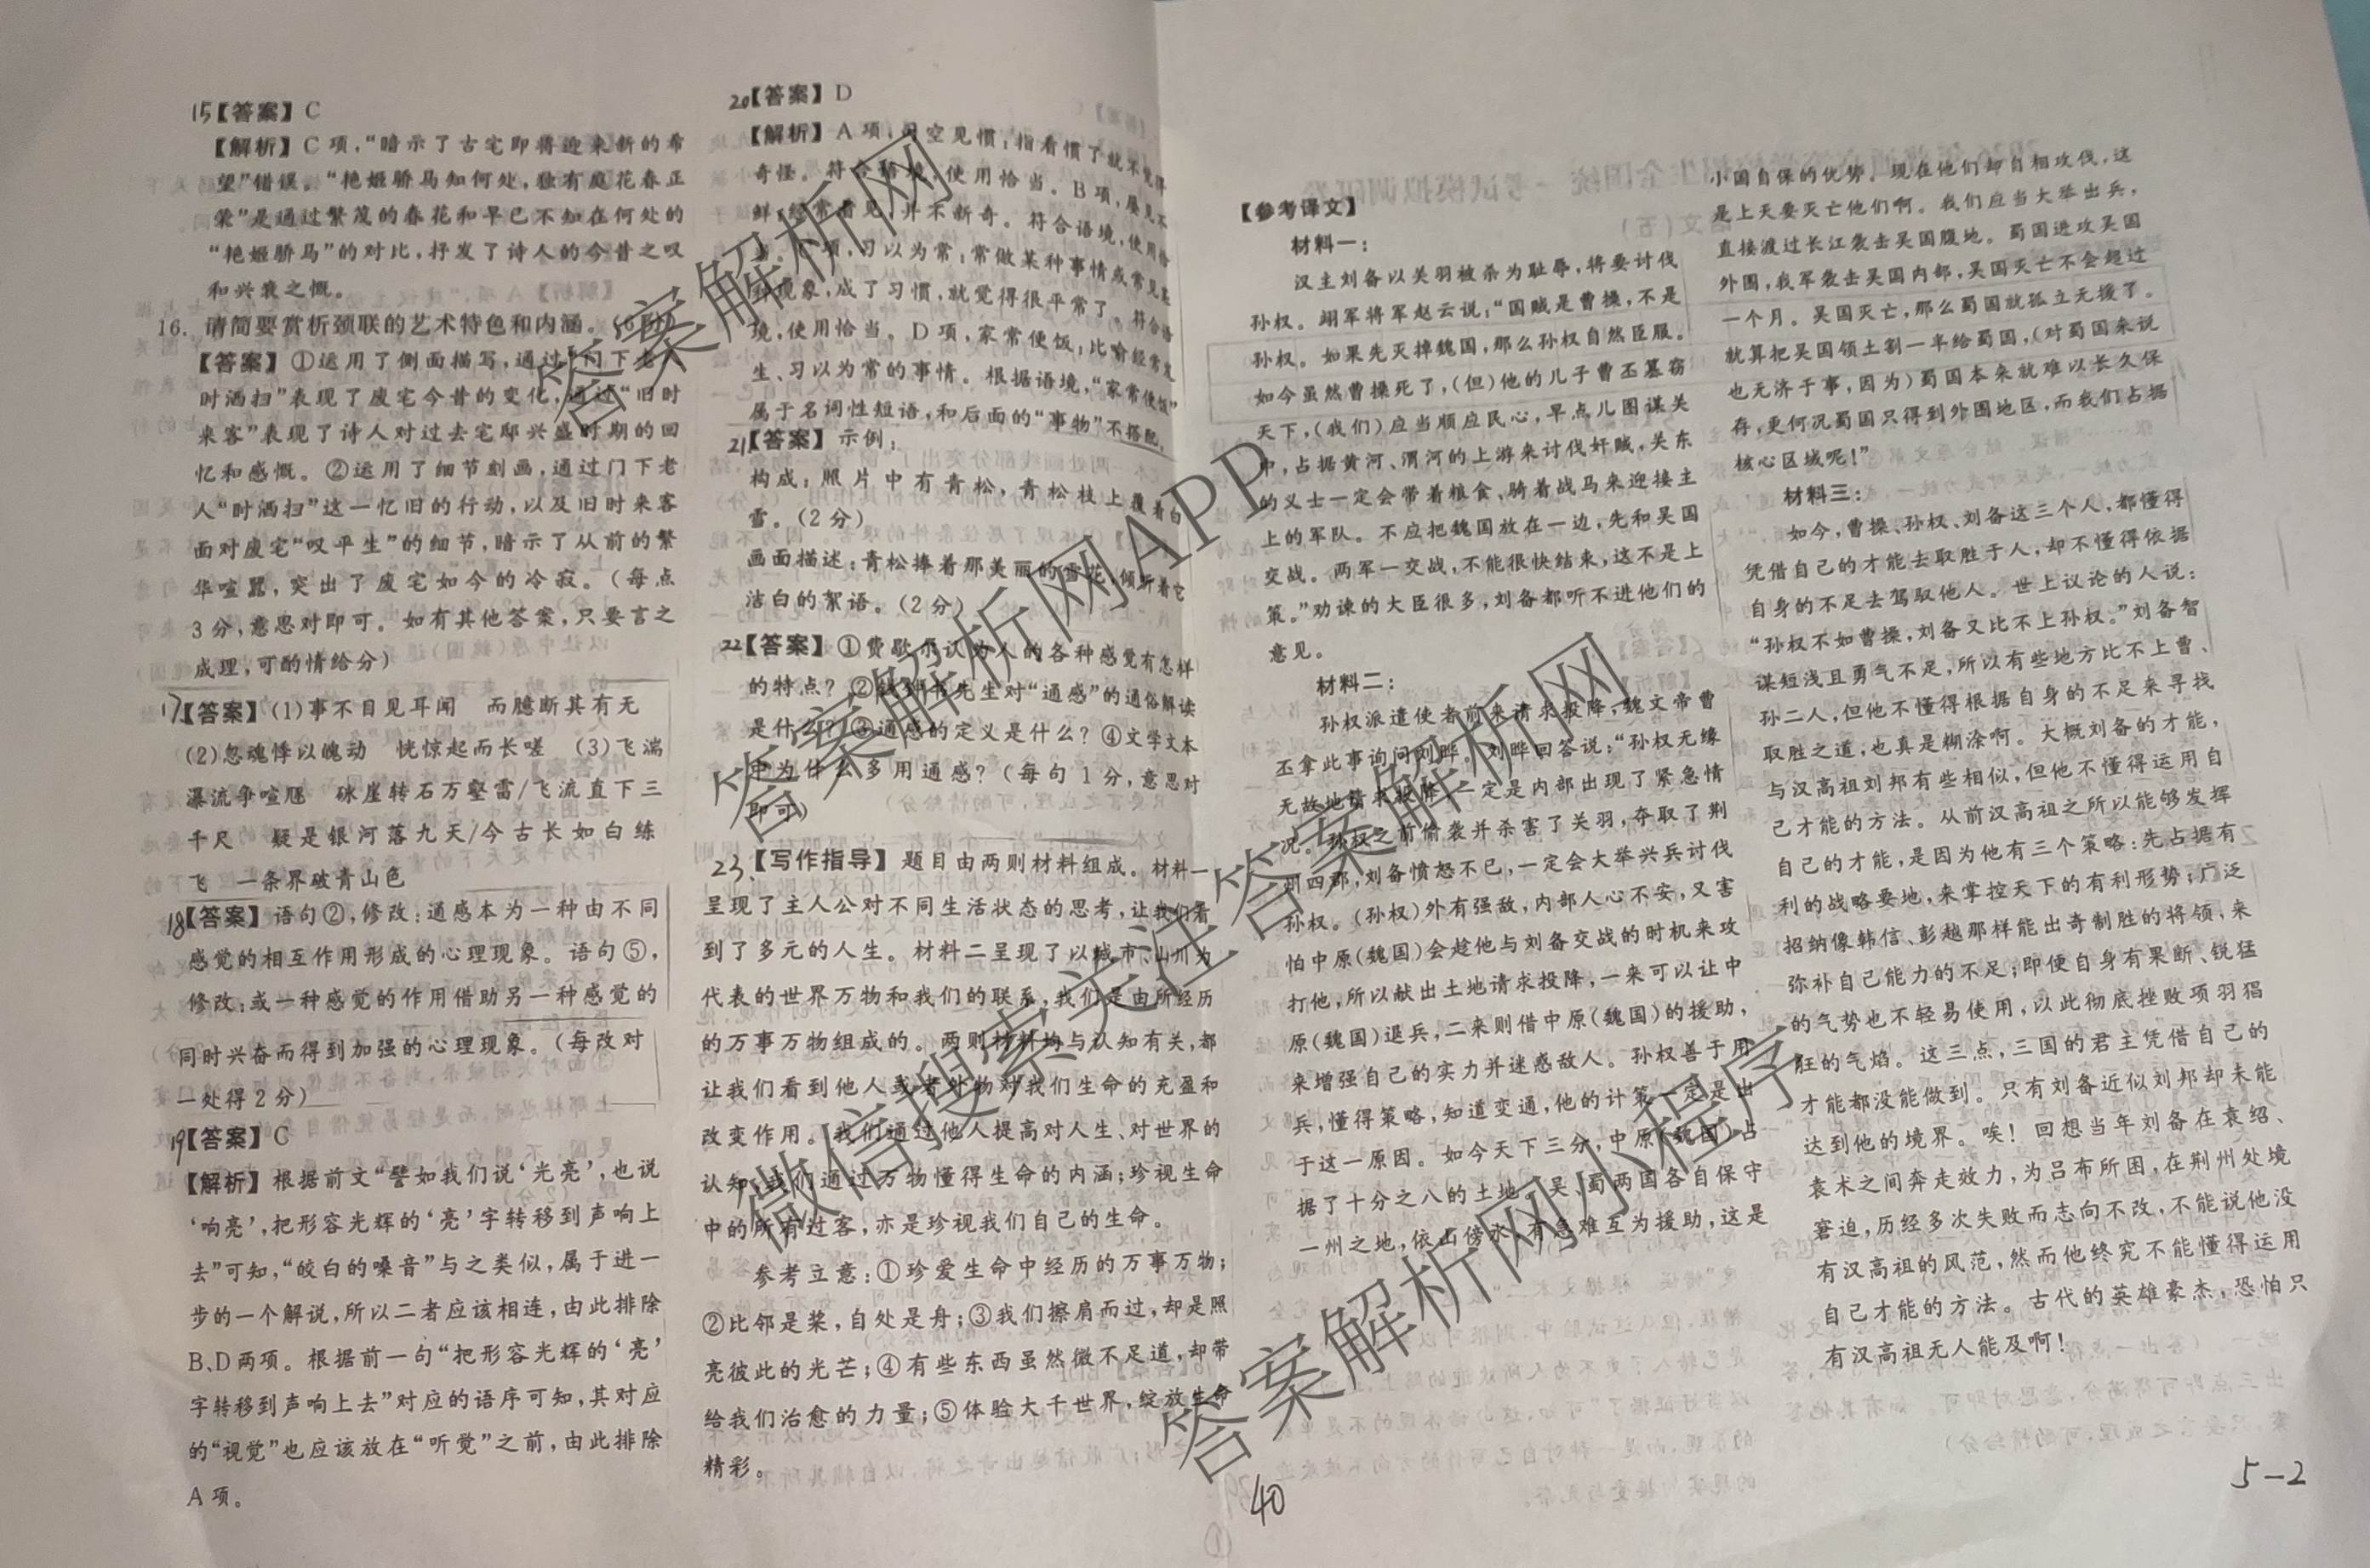 15【答案】C
【解析】C项,“暗示了古宅即将迎来新的希
望”错误。“艳姬骄马知何处,独有庭花春正
荣”是通过繁茂的春花和早已不知在何处的
“艳姬骄马”的对比,抒发了诗人的今昔之叹
和兴衰之慨。
16. 请简要赏析颈联的艺术特色和内涵。(6分)
【答案】①运用了侧面描写,通过“门下老人
时洒扫”表现了废宅今昔的变化,通过“旧时
来客”表现了诗人对过去宅邸兴盛时期的回
忆和感慨。②运用了细节刻画,通过门下老
人“时洒扫”这一忆旧的行动,以及旧时来客
面对废宅“叹平生”的细节,暗示了从前的繁
华喧嚣,突出了废宅如今的冷寂。(每点
3分,意思对即可。如有其他答案,只要言之
成理,可酌情给分)
17【答案】(1)事不目见耳闻 而臆断其有无
(2)忽魂悸以魄动 恍惊起而长嗟 (3)飞湍
瀑流争喧豗 砯崖转石万壑雷/飞流直下三
千尺 疑是银河落九天/今古长如白练
飞 一条界破青山色
18【答案】语句②,修改:通感本为一种由不同
感觉的相互作用形成的心理现象。语句⑤,
修改:或一种感觉的作用借助另一种感觉的
同时兴奋而得到加强的心理现象。(每改对
一处得2分)
19【答案】C
【解析】根据前文“譬如我们说‘光亮’,也说
‘响亮’,把形容光辉的‘亮’字转移到声响上
去”可知,“皎白的嗓音”与之类似,属于进一
步的一个解说,所以二者应该相连,由此排除
B、D两项。根据前一句“把形容光辉的‘亮’
字转移到声响上去”对应的语序可知,其对应
的“视觉”也应该放在“听觉”之前,由此排除
A项。
20【答案】D
【解析】A项,司空见惯:指看惯了就不觉得
奇怪。符合语境,使用恰当。B项,屡见不
鲜:经常看见,并不新奇。符合语境,使用恰
当。C项,习以为常:常做某种事情或常见某
种现象,成了习惯,就觉得很平常了。符合语
境,使用恰当。D项,家常便饭:比喻经常发
生、习以为常的事情。根据语境,“家常便饭”
属于名词性短语,和后面的“事物”不搭配。
21【答案】示例:
构成:照片中有青松,青松枝上覆着白
雪。(2分)
画面描述:青松捧着那美丽的雪花,倾听着它
洁白的絮语。(2分)
22【答案】①费歇尔认为人的各种感觉有怎样
的特点?②钱钟书先生对“通感”的通俗解读
是什么?③通感的定义是什么?④文学文本
中为什么多用通感?(每句1分,意思对
即可)
23.【写作指导】题目由两则材料组成。材料一
呈现了主人公对不同生活状态的思考,让我们看
到了多元的人生。材料二呈现了以城市、山川为
代表的世界万物和我们的联系,我们是由所经历
的万事万物组成的。两则材料均与认知有关,都
让我们看到他人或者外物对我们生命的充盈和
改变作用。我们通过他人提高对人生、对世界的
认知,我们通过万物懂得生命的内涵;珍视生命
中的所有过客,亦是珍视我们自己的生命。
参考立意:①珍爱生命中经历的万事万物;
②比邻是桨,自处是舟;③我们擦肩而过,却是照
亮彼此的光芒;④有些东西虽然微不足道,却带
给我们治愈的力量;⑤体验大千世界,绽放生命
精彩。
【参考译文】
材料一:
汉主刘备以关羽被杀为耻辱,将要讨伐
孙权。翊军将军赵云说:“国贼是曹操,不是
孙权。如果先灭掉魏国,那么孙权自然臣服。
如今虽然曹操死了,(但)他的儿子曹丕篡窃
天下,(我们)应当顺应民心,早点儿图谋关
中,占据黄河、渭河的上游来讨伐奸贼,关东
的义士一定会带着粮食、骑着战马来迎接主
上的军队。不应把魏国放在一边,先和吴国
交战。两军一交战,不能很快结束,这不是上
策。”劝谏的大臣很多,刘备都听不进他们的
意见。
材料二:
孙权派遣使者前来请求投降,魏文帝曹
丕拿此事询问刘晔。刘晔回答说:“孙权无缘
无故地请求投降,一定是内部出现了紧急情
况。孙权之前偷袭并杀害了关羽,夺取了荆
州四郡,刘备愤怒不已,一定会大举兴兵讨伐
孙权。(孙权)外有强敌,内部人心不安,又害
怕中原(魏国)会趁他与刘备交战的时机来攻
打他,所以献出土地请求投降,一来可以让中
原(魏国)退兵,二来则借中原(魏国)的援助,
来增强自己的实力并迷惑敌人。孙权善于用
兵,懂得策略,知道变通,他的计策一定是出
于这一原因。如今天下三分,中原(魏国)占
据了十分之八的土地。吴、蜀两国各自保守
一州之地,依山傍水,有急难互为援助,这是
小国自保的优势。现在他们却自相攻伐,这
是上天要灭亡他们啊。我们应当大举出兵,
直接渡过长江袭击吴国腹地。蜀国进攻吴国
外围,我军袭击吴国内部,吴国灭亡不会超过
一个月。吴国灭亡,那么蜀国就孤立无援了。
就算把吴国领土割一半给蜀国,(对蜀国来说
也无济于事,因为)蜀国本来就难以长久保
存,更何况蜀国只得到外围地区,而我们占据
核心区域呢!”
材料三:
如今,曹操、孙权、刘备这三个人,都懂得
凭借自己的才能去取胜于人,却不懂得依据
自身的不足去驾驭他人。世上议论的人说:
“孙权不如曹操,刘备又比不上孙权。”刘备智
谋短浅且勇气不足,所以有些地方比不上曹、
孙二人,但他不懂得根据自身的不足来寻找
取胜之道,也真是糊涂啊。大概刘备的才能,
与汉高祖刘邦有些相似,但他不懂得运用自
己才能的方法。从前汉高祖之所以能够发挥
自己的才能,是因为他有三个策略:先占据有
利的战略要地,来掌控天下的有利形势;广泛
招纳像韩信、彭越那样能出奇制胜的将领,来
弥补自己能力的不足;即便自身有果断、锐猛
的气势也不轻易使用,以此彻底挫败项羽猖
狂的气焰。这三点,三国的君主凭借自己的
才能都没能做到。只有刘备近似刘邦却未能
达到他的境界。唉!回想当年刘备在袁绍、
袁术之间奔走效力,为吕布所困,在荆州处境
窘迫,历经多次失败而志向不改,不能说他没
有汉高祖的风范,然而他终究不能懂得运用
自己才能的方法。古代的英雄豪杰,恐怕只
有汉高祖无人能及啊!
40
5-2
答案解析网
答案解析网APP
微信搜索关注答案解析网
答案解析网小程序